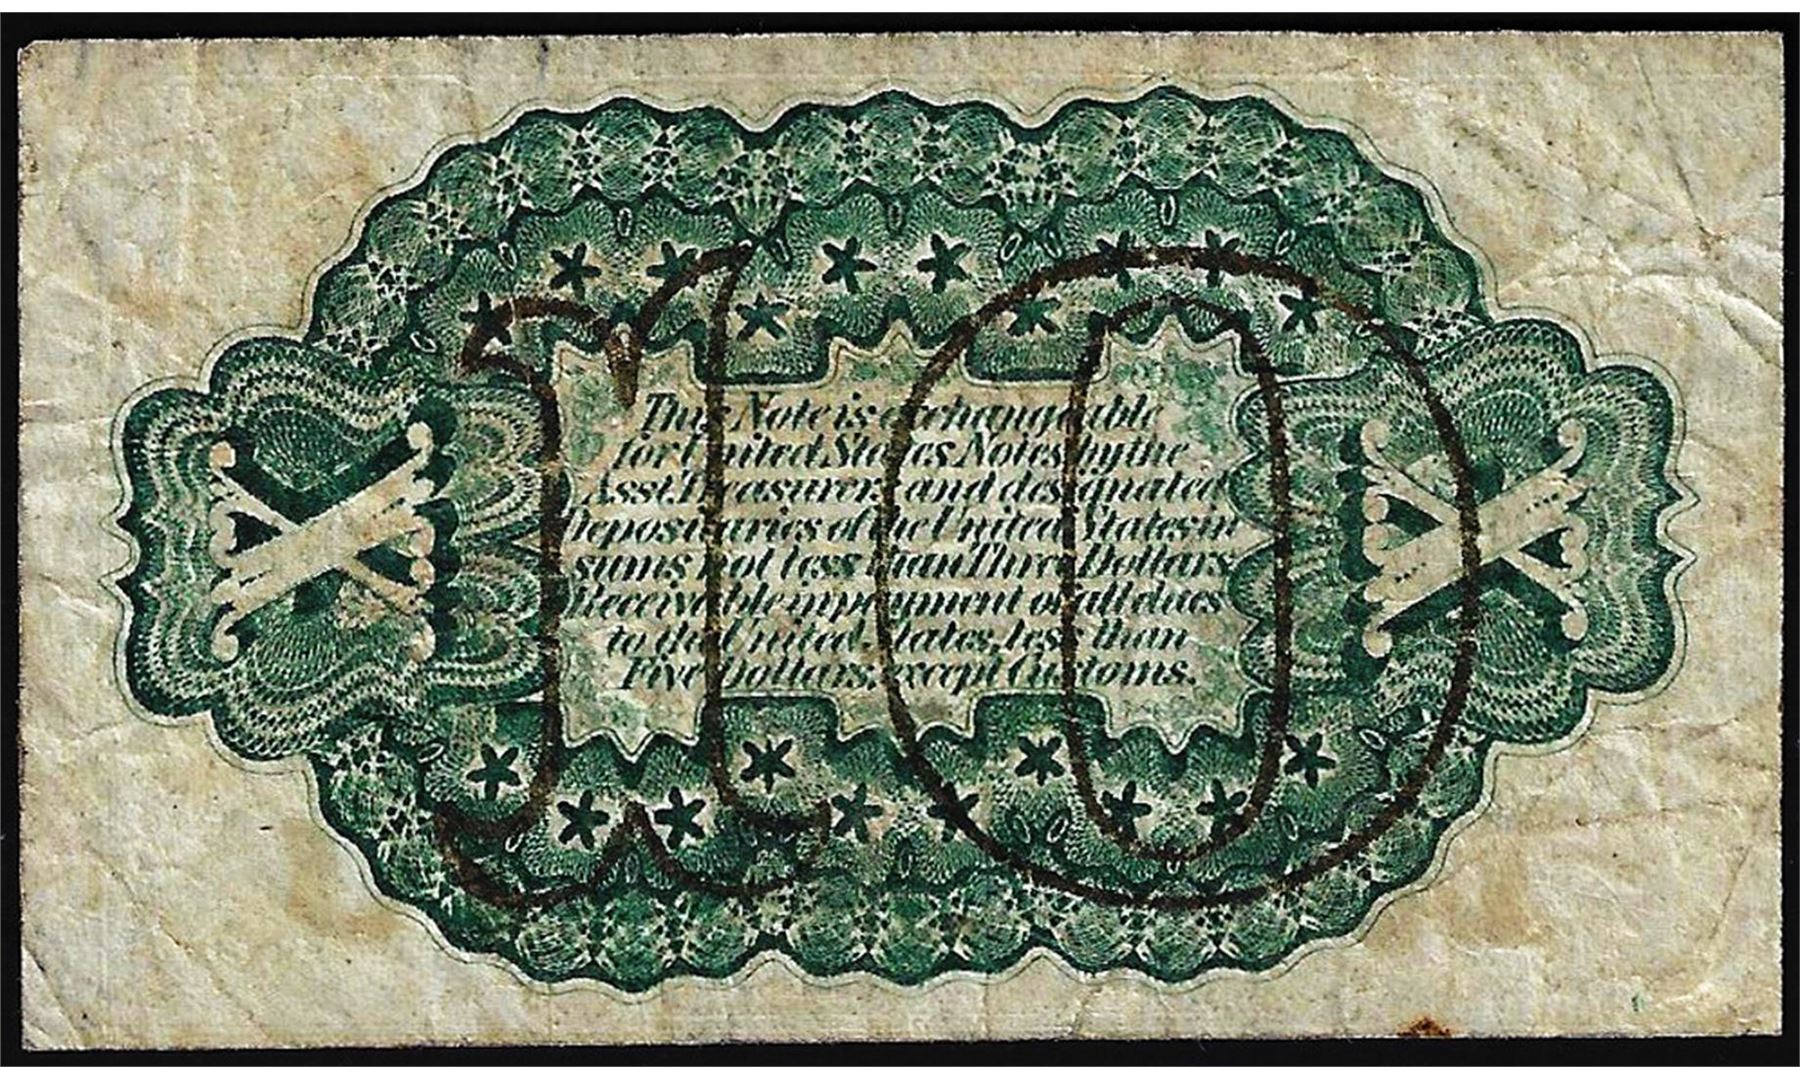 10
This Note is exchangeable
for United States Notes by the
Asst. Treasurers and designated
Depositaries of the United States in
sums not less than Three Dollars
Receivable in payment of all dues
to the United States, less than
Five Dollars, except Customs.
X X